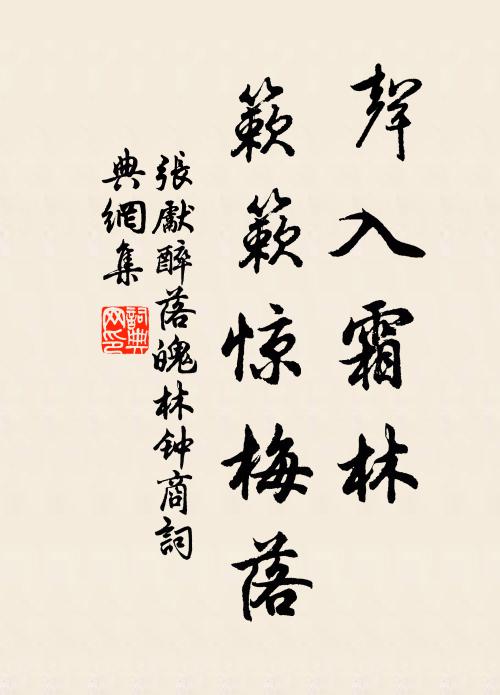 聲入霜林
簌簌惊梅落
張獻醉落魄林钟商詞
典網集
詞典
网印